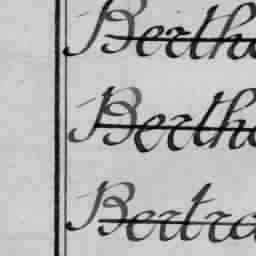 Berthe
Berthe
Bertra